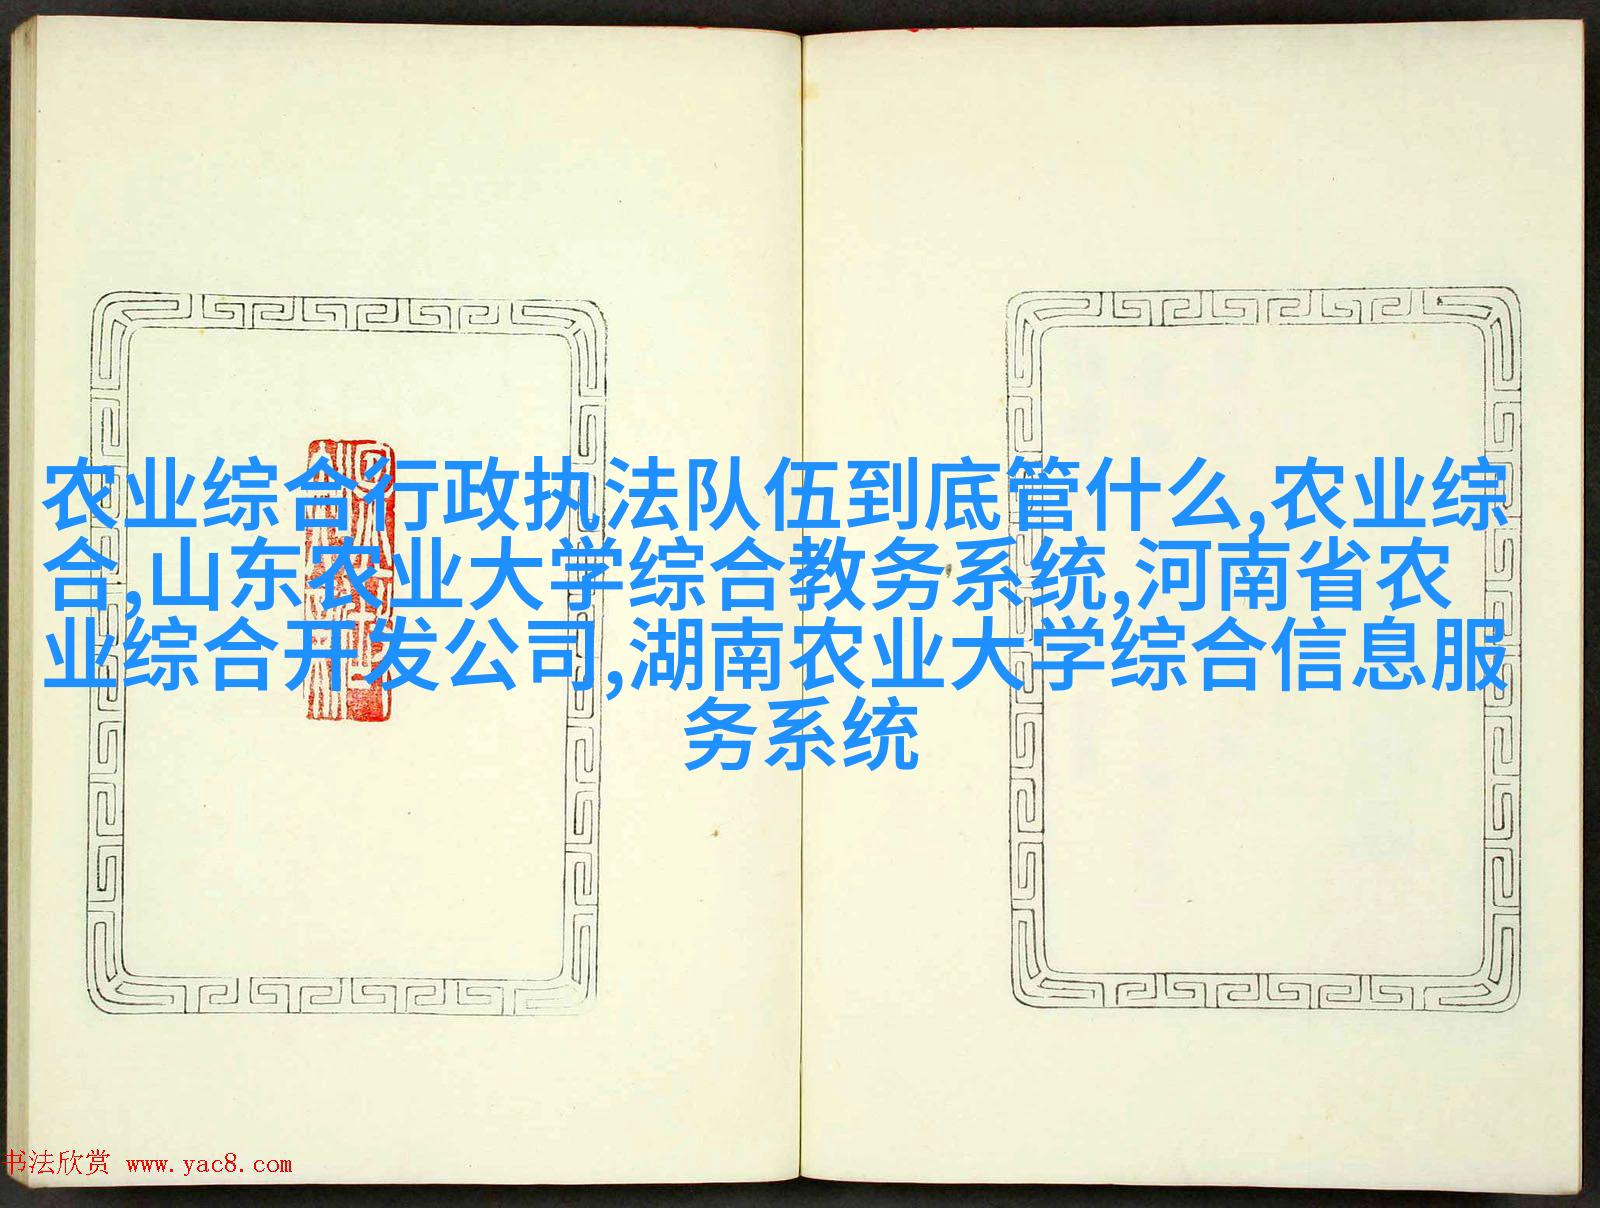 农业综合行政执法队伍到底管什么,农业综
合,山东农业大学综合教务系统,河南省农
业综合开发公司,湖南农业大学综合信息服
务系统
书法欣赏 www.yac8.com